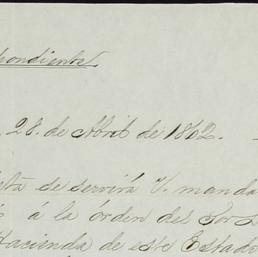 pondiente.
28. de Abril de 1862.
ta se servirá V. manda
á la órden del Sor
Hacienda de este Estado